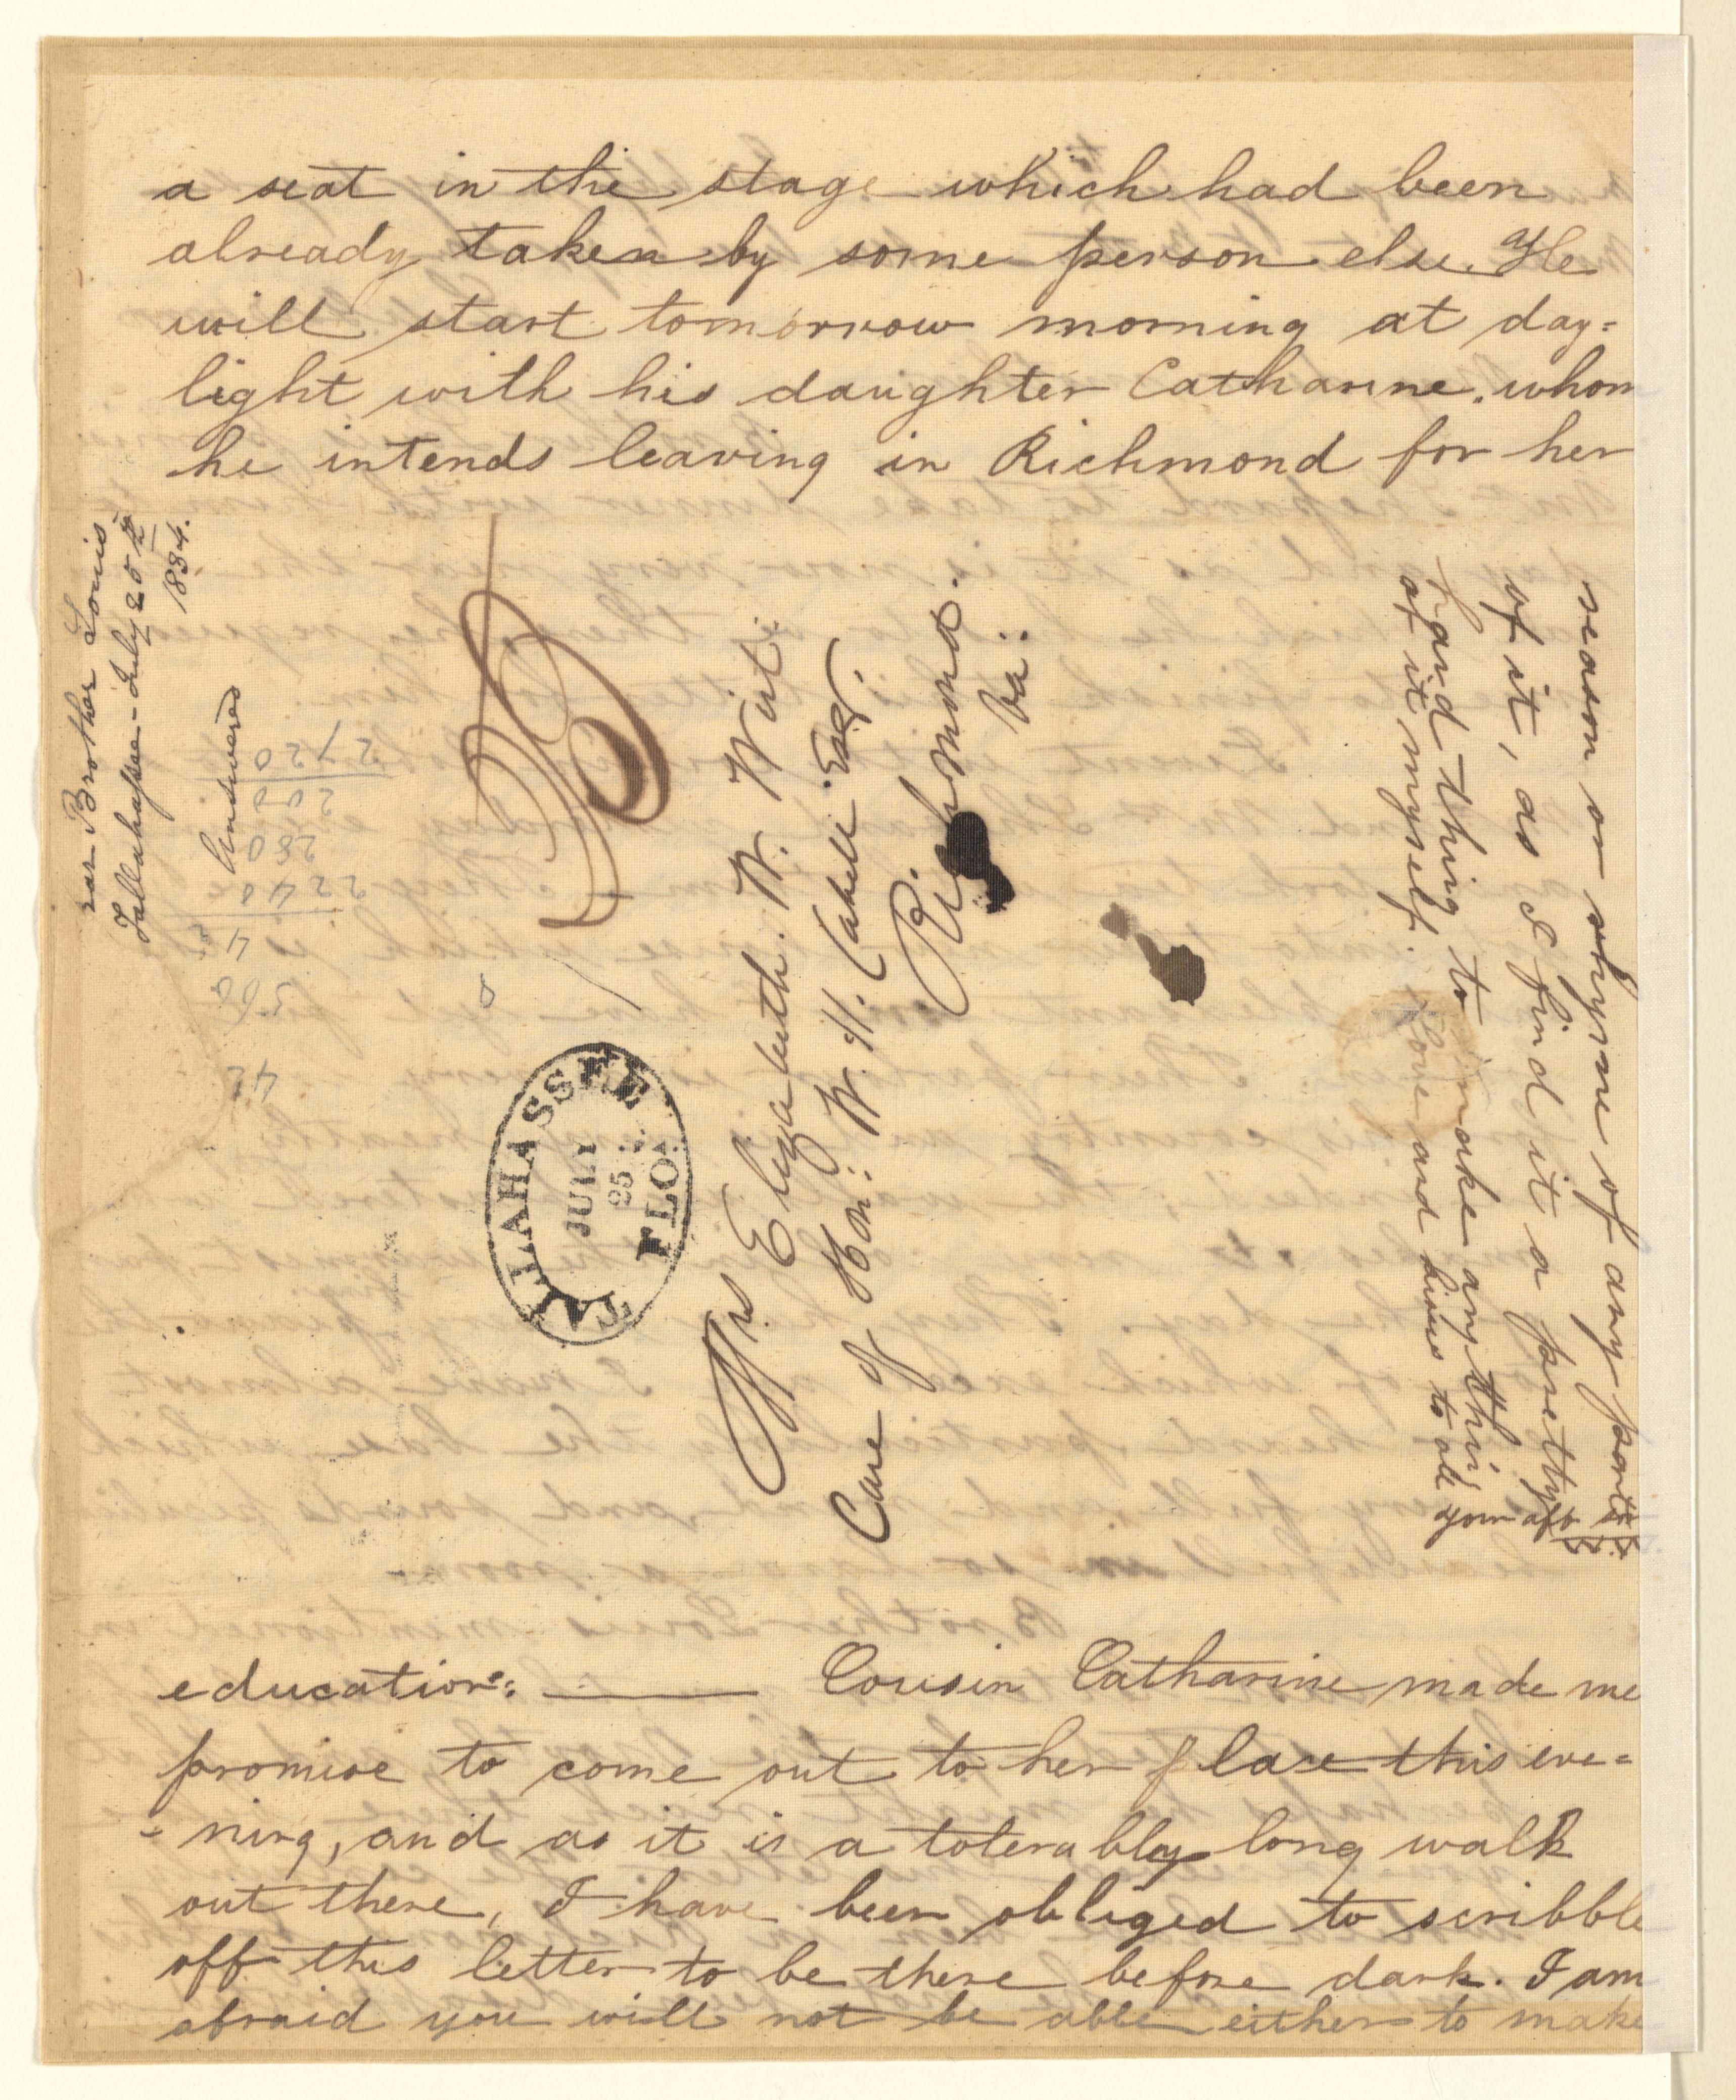 a seat in the stage which had been
already taken by some person else. He
will start tomorrow morning at day=
light with his daughter Catharine. whom
he intends leaving in Richmond for her
education: ——— Cousin Catharine made me
promise to come out to her place this eve=
-ning, and as it is a tolerably long walk
out there, I have been obliged to scribble
off this letter to be there before dark. I am
afraid you will not be able either to make
reason or rhyme of any part
of it, as I find it a pretty
hard thing to make any thing
of it myself. Love and kisses to all
your aff
Mrs Elizabeth. W. Wirt.
Care of Hon: W. H. Cabell. Esqr.
Richmond.
Va:
TALLAHASSEE
JULY
25
FLOA
Brother Louis
Tallahassee - July 25th
1834.
Answered
2720
200
280
2240
4
560
42